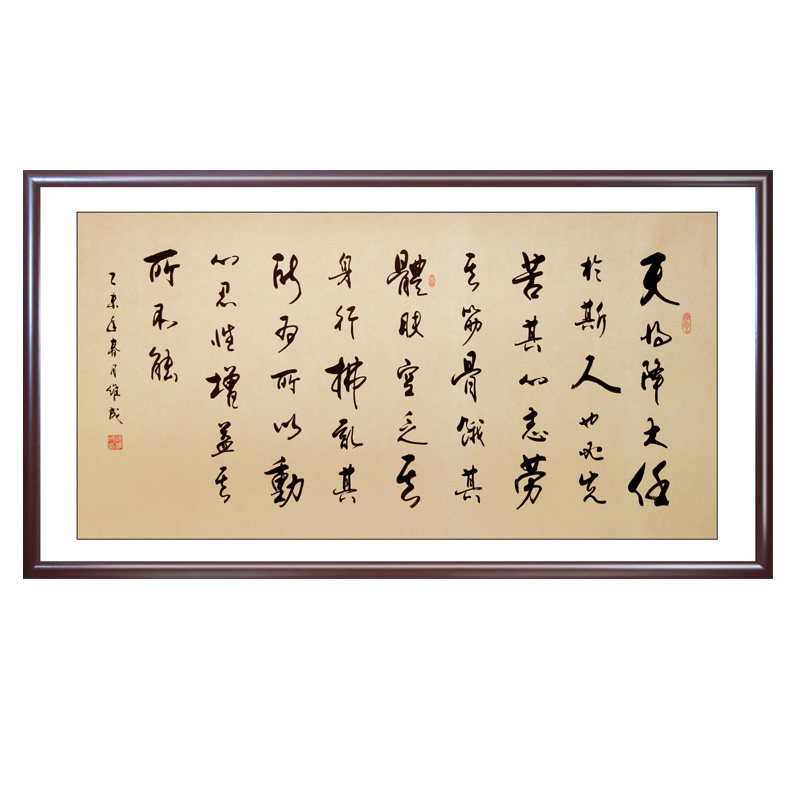 天将降大任
於斯人也必先
苦其心志勞
其筋骨餓其
體膚空乏其
身行拂亂其
所為所以動
心忍性增益其
所不能
乙未年春月維成